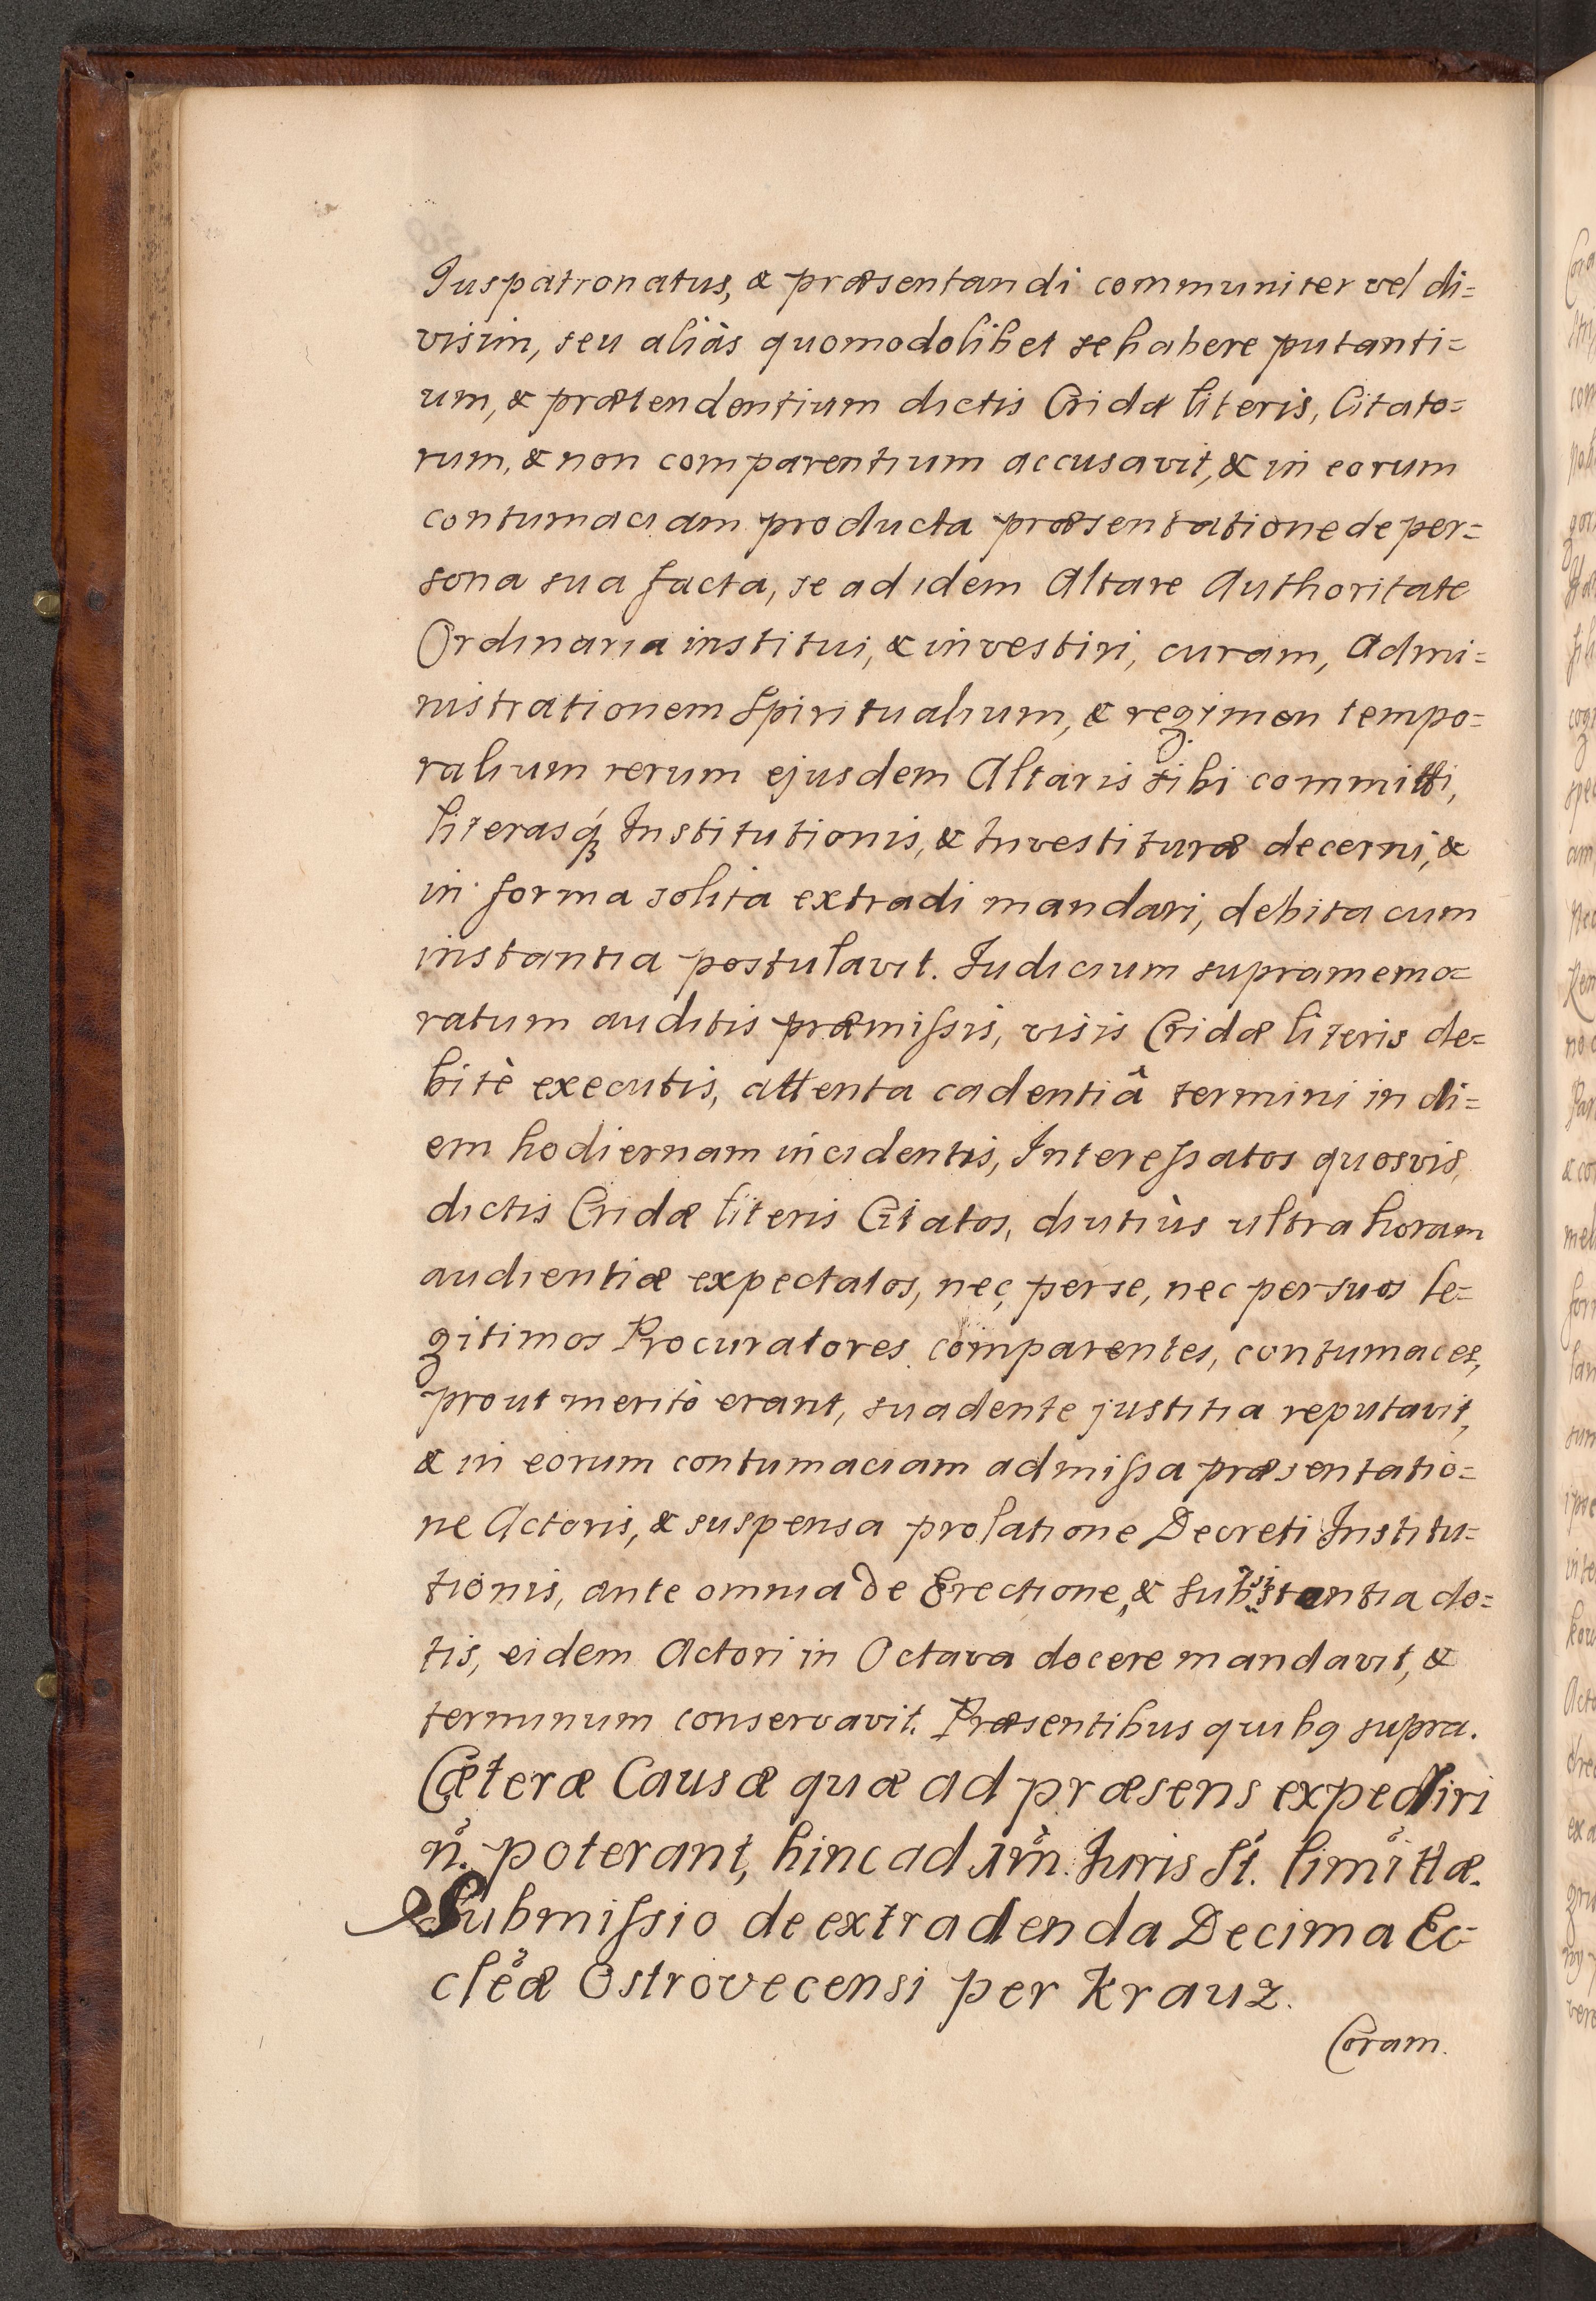 Juspatronatus, & præsentandi communiter vel di=
visim, seu aliàs quomodolibet se habere putanti=
um, & prætendentium dictis Cridæ literis, Citato=
rum, & non comparentium accusavit, & in eorum
contumaciam producta præsentatione de per=
sona sua facta, se ad idem Altare Authoritate
Ordinaria institui, & investiri, curam, Admi=
nistrationem Spiritualium, & regimen tempo=
ralium rerum ejusdem Altaris sibi committi,
literasq́ꝫ Institutionis, & Investituræ decerni, &
in forma solita extradi mandari, debita cum
instantia postulavit. Judicium supramemo=
ratum auditis præmiſsis, visis Cridæ literis de=
bitè executis, attenta cadentiâ termini in di=
em hodiernam incidentis, Intereſsatos quosvis,
dictis Cridæ literis Citatos, diutiùs ultra horam
audientiæ expectatos, nec, per se, nec per suos le=
gitimos Procuratores comparentes, contumaces,
prout meritò erant, suadente justitia reputavit,
& in eorum contumaciam admiſsa præsentatio=
ne Actoris, & suspensa prolatione Decreti Institu=
tionis, ante omnia de Erectione, & subsistentia do=
tis, eidem Actori in Octava docere mandavit, &
terminum conservavit. Præsentibus quibꝯ supra.
Cæteræ Causæ quæ ad præsens expediri
n̊. poterant, hinc ad im̊n. Juris st́. limitt̊æ.
Submiſsio de extradenda Decima Ec=
clẻæ Ostrovecensi per Krauz.
Coram.